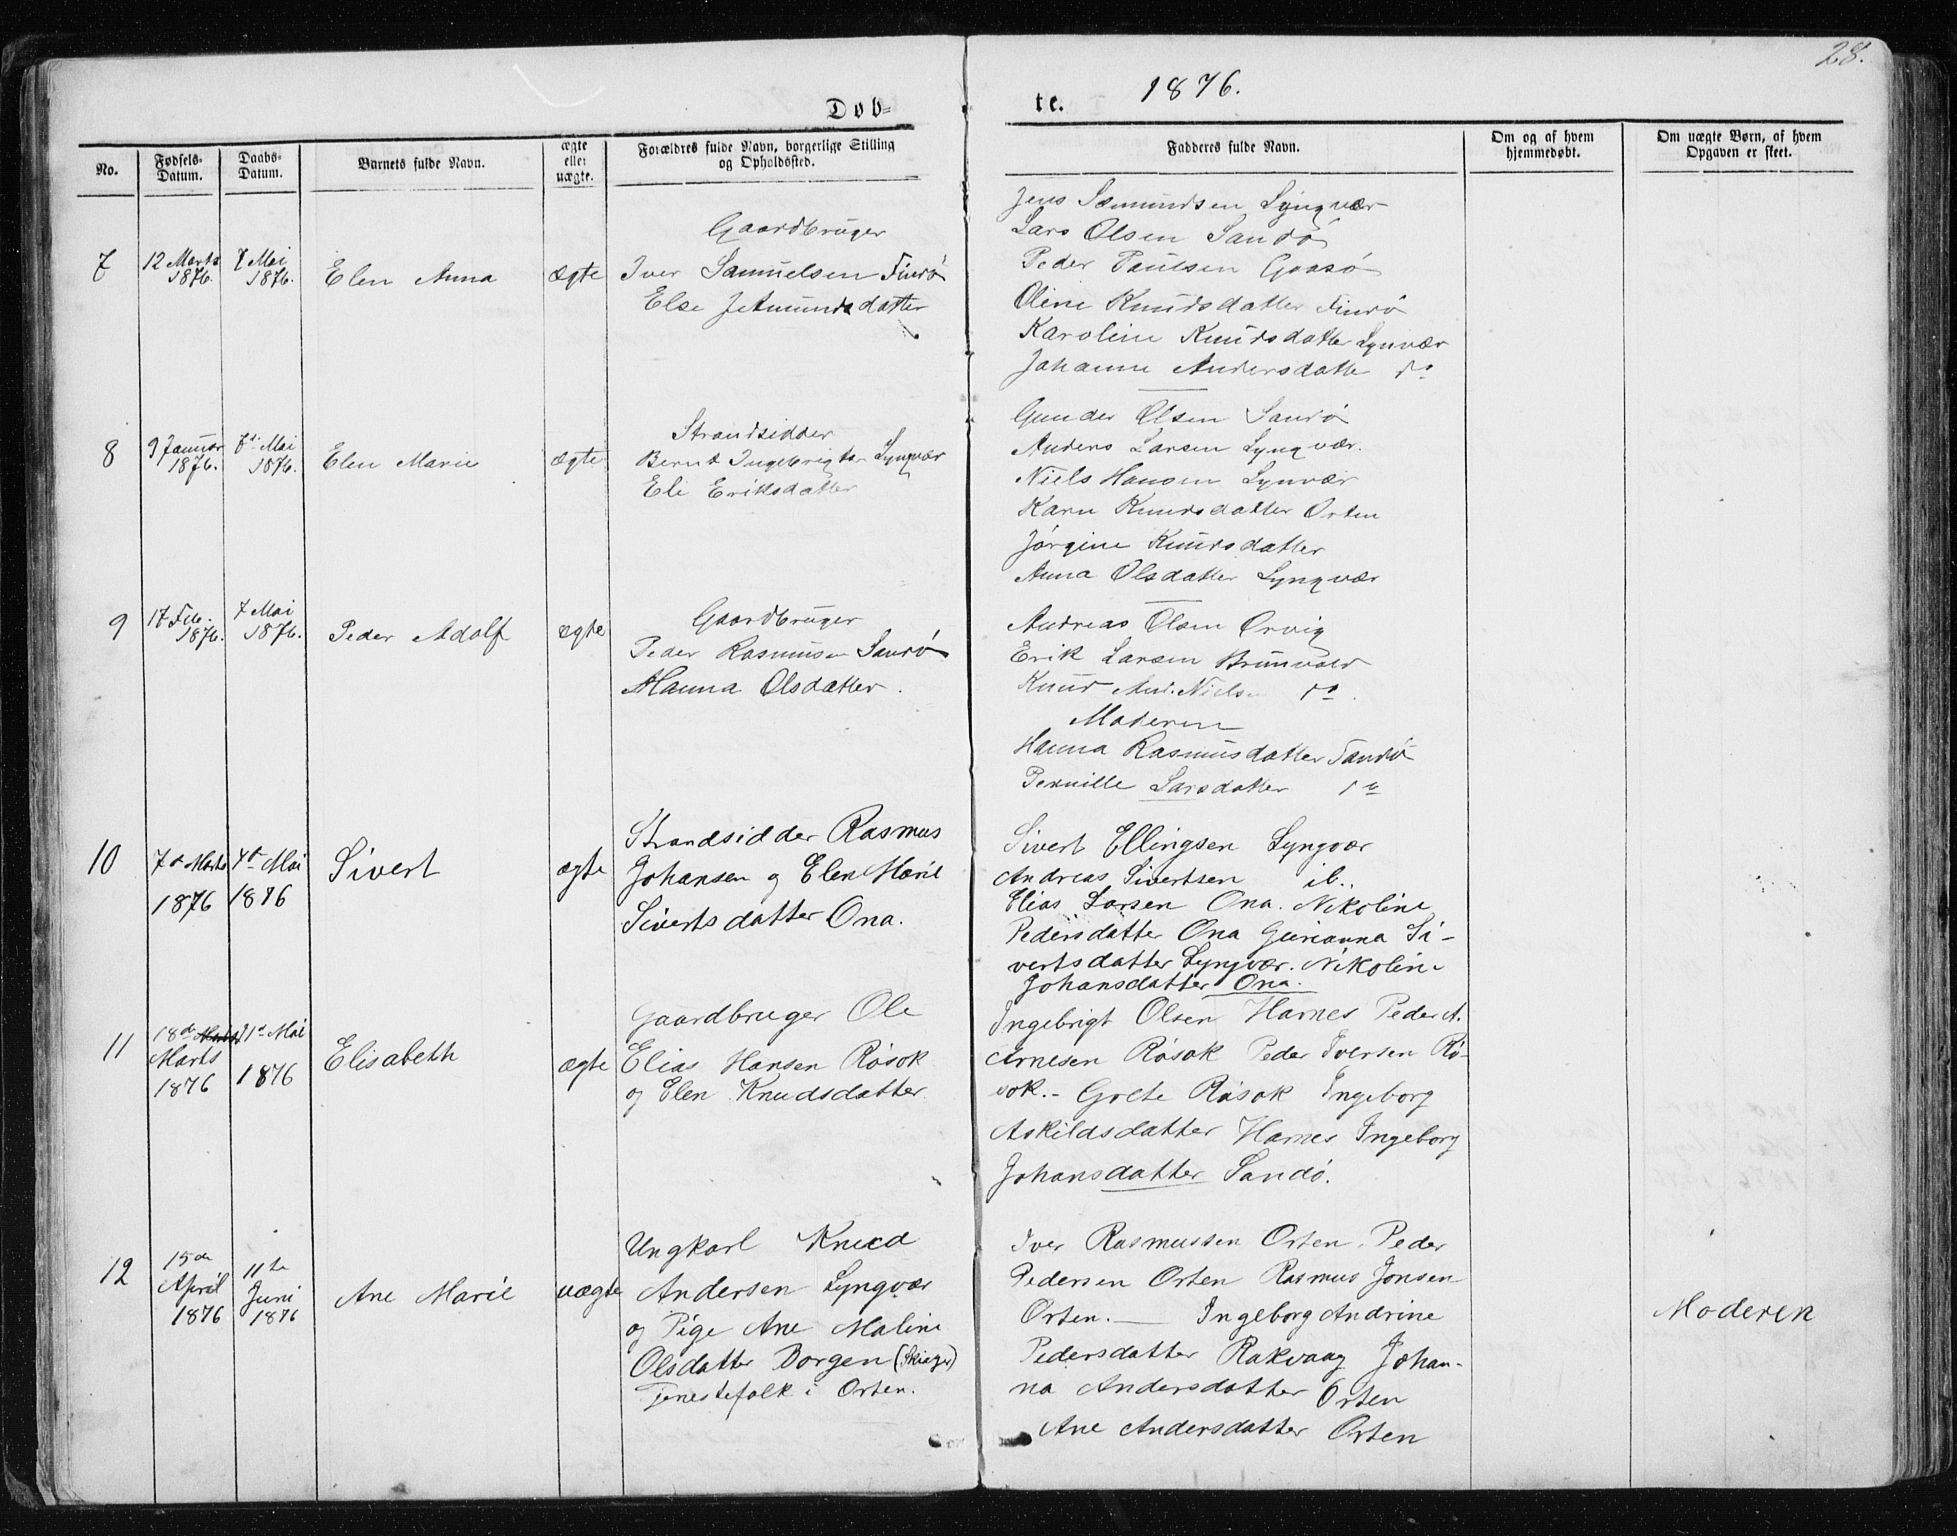 28.
1876.
Døb-
te.
No.
Fødsels-
Datum.
Daabs-
Datum.
Barnets fulde Navn.
ægte
eller
uægte.
Forældres fulde Navn, borgerlige Stilling
og Opholdssted.
Fadderes fulde Navn.
Om og af hvem
hjemmedøbt.
Om uægte Børn, af hvem
Opgaven er skeet.
7
12 Marts
1876.
7 Mai
1876.
Elen Anna
ægte
Gaardbruger
Iver Samuelsen Finnø
Else Jetmundsdatter
Jens Sæmundsen Lyngvær
Lars Olsen Sandø
Peder Paulsen Gaasø
Oline Knudsdatter Finnø
Karoline Knudsdatter Lynvær
Johanne Andersdatter do
8
9 Januar
1876.
7de Mai
1876.
Elen Marie
ægte
Strandsidder
Bernt Ingebrigtsen Lyngvær
Eli Eriksdatter
Gunder Olsen Sandø
Anders Larsen Lyngvær.
Niels Hansen Lynvær
Karn Knudsdatter Orten
Jørgine Knudsdatter
Anna Olsdatter Lyngvær
9
17 Feb.
1876.
7 Mai
1876.
Peder Adolf
ægte
Gaardbruger
Peder Rasmusen Sandø
Hanna Olsdatter.
Andreas Olsen Orvig
Erik Larsen Brunvold
Knud And. Nielsen do.
Moderen
Hanna Rasmusdatter Sandø
Pernille Larsdatter do
10
7de Marts
1876
7de Mai
1876
Sivert
ægte
Strandsidder Rasmus
Johansen og Elen Marie
Sivertsdatter Ona.
Sivert Ellingsen Lyngvær
Andreas Sivertsen ib..
Elias Larsen Ona. Nikoline
Pedersdatter Ona Gurianna Si-
vertsdatter Lyngvær. Nikoline
Johansdatter Ona.
11
18de
Marts
1876
21de Mai
1876
Elisabeth
ægte
Gaardbruger Ole
Elias Hansen Røsok
og Elen Knudsdatter
Ingebrigt Olsen Harnes Peder A.
Arnesen Røsok Peder Iversen Rø-
sok. - Golte Røsok Ingeborg
Askildsdatter Harnes Ingeborg
Johansdatter Sandø.
12
15de
April
1876
11te
Juni
1876
Ane Marie
uægte
Ungkarl Knud
Andersen Lyngvær
og Pige Ane Maline
Olsdatter Borgen
Tjenestefolk i Orten.
Iver Rasmussen Orten. Peder
Pedersen Orten Rasmus Jonsen
Orten. — Ingeborg Andrine
Pedersdatter Rakvaag Johan-
na Andersdatter Orten
Ane Andersdatter Orten
Moderen